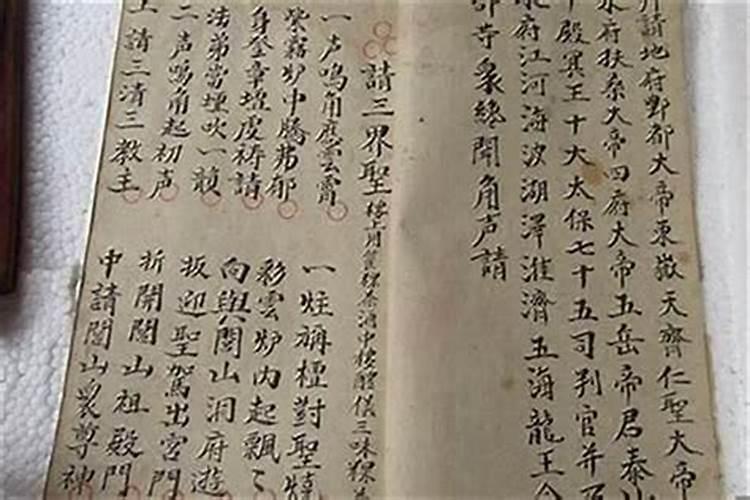 拜請地府酆都大帝東嶽天齊仁聖大帝
水府扶桑大帝四府大帝五岳帝君泰山
十殿冥王十大太保七十五司判官并
水府江河海波湖澤淮濟五海龍王
部寺眾綘聞角声請
請三界聖
一声鳴角應雲霄
紫霧炉中騰弗郁
身登章壇虔祷請
法弟當壇吹一
二声鳴角起初声
上請三清三教主
一炷稱檀對聖
彩雲炉内起飄〻
向與閭山洞府遊
坂迎聖駕出宮門
折開閭山祖殿門
中請閭山衆尊神